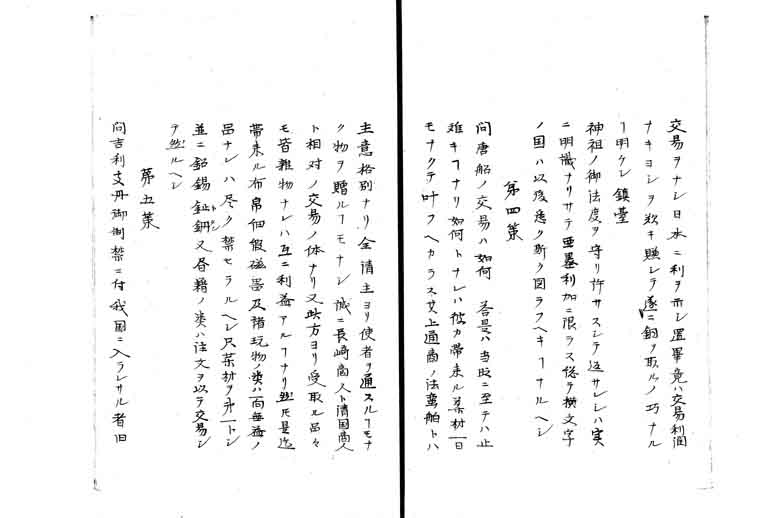 交易ヲナシ日本ニ利ヲ示シ置畢竟ハ交易利潤
ナキヨシヲ欺キ賺シテ遂ニ銅ヲ取ルノ巧ナル
ヿ明ケシ鎮臺
神祖ノ御法度ヲ守リ許サスシテ返サレシハ実
ニ明識ナリサテ亜墨利加ニ限ラス総テ横文字
ノ国ハ以後悉ク斯ク図ラフヘキヿナルヘシ
第四策
問唐船ノ交易ハ如何 答是ハ当時ニ至テハ止
難キヿナリ如何トナレハ彼カ帯来ル薬材一日
モナクテ叶フヘカラス其上通商ノ法蛮舶トハ
主意格別ナリ全清主ヨリ使者ヲ通スルヿモナ
ク物ヲ贈ルヿモナシ誠ニ長崎商人ト清国商人
ト相対ノ交易ノ体ナリ又此方ヨリ受取ル品々
モ皆雑物ナレハ互ニ利益アルヿナリ然氏是迄
帯来ル布帛佃假磁器及諸玩物ノ類ハ一向無益ノ
品ナレハ尽ク禁セラルヘシ只薬材ヲ第一トシ
並ニ鉛錫 鉦鈿又書籍ノ類ハ注文ヲ以テ交易シ
テ然ルヘシ
第五策
問吉利支丹御制禁ニ付我国ニ入ラレサル者旧